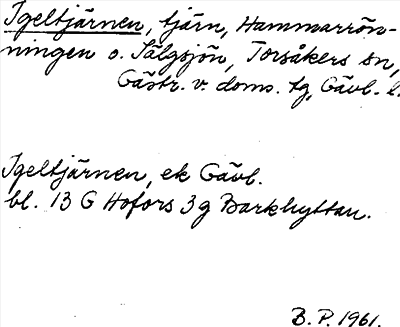 Igeltjärnen, tjärn, Hammarrön-
ningen o. Sälgsjön, Torsåkers sn,
Gästr. v. doms. tg, Gävl. l.
Igeltjärnen, ek Gävl.
bl. 13 G Hofors 3 g Barkhyttan.
B. P. 1961.